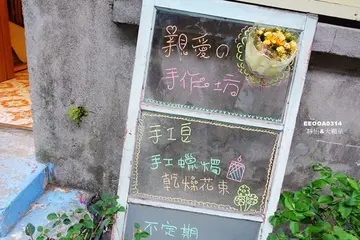 親愛の
手作土坊
手工皂
手工蠟燭
乾燥花束
不定期
EEOOA0314